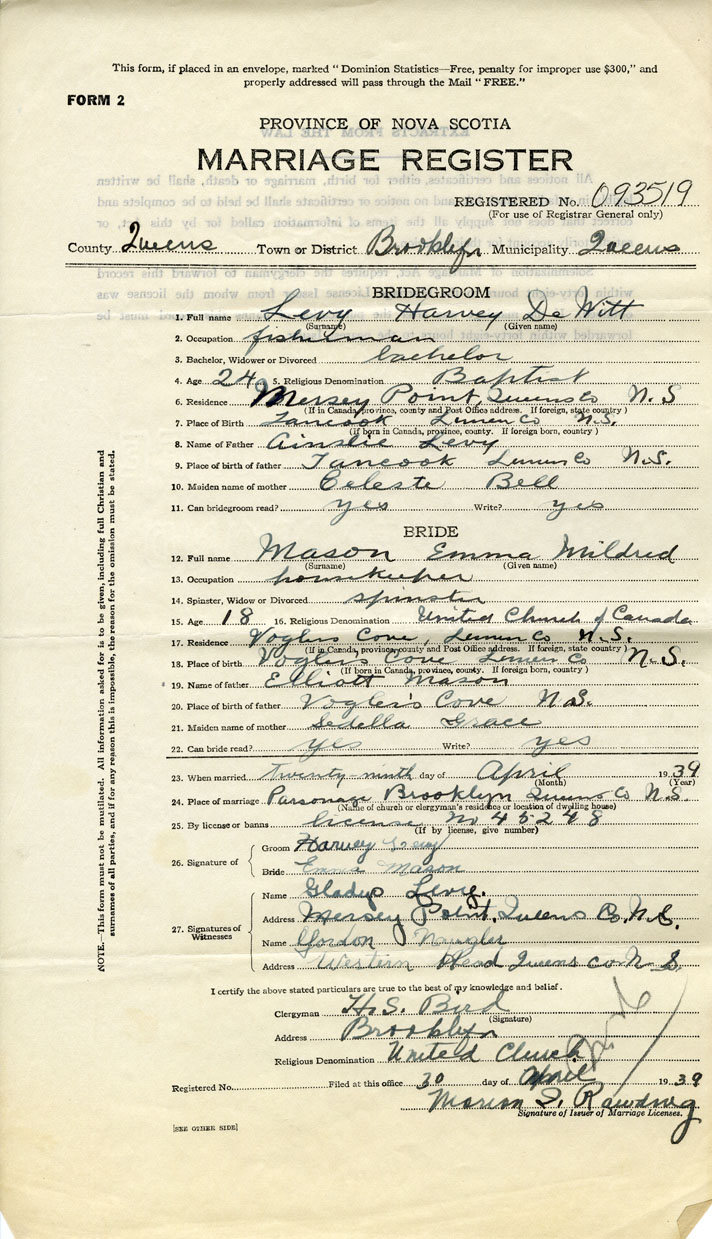 This form, if placed in an envelope, marked “Dominion Statistics—Free, penalty for improper use $300,” and
properly addressed will pass through the Mail “FREE.”
FORM 2
PROVINCE OF NOVA SCOTIA
MARRIAGE REGISTER
REGISTERED No. 093519
(For use of Registrar General only)
County Queens Town or District Brooklyn Municipality Queens
BRIDEGROOM
1. Full name Levy Harvey De Witt
(Surname) (Given name)
2. Occupation fisherman
3. Bachelor, Widower or Divorced bachelor
4. Age 24 5. Religious Denomination Baptist
6. Residence Mersey Point Queens Co N.S
(If in Canada, province, county and Post Office address. If foreign, state country)
7. Place of Birth Tancook Lunen Co N.S.
(If born in Canada, province, county. If foreign born, country)
8. Name of Father Ainslie Levy
9. Place of birth of father Tancook Lunen Co N.S.
10. Maiden name of mother Celeste Bell
11. Can bridegroom read? yes Write? yes
BRIDE
12. Full name Mason Emma Mildred
(Surname) (Given name)
13. Occupation housekeeper
14. Spinster, Widow or Divorced spinster
15. Age 18 16. Religious Denomination United Church of Canada
17. Residence Voglers Cove, Lunen Co N.S.
(If in Canada, province, county and Post Office address. If foreign, state country)
18. Place of birth Voglers Cove Lunen Co N.S.
(If born in Canada, province, county. If foreign born, country)
19. Name of father Elliott Mason
20. Place of birth of father Vogler's Cove N.S.
21. Maiden name of mother Sedella Grace
22. Can bride read? yes Write? yes
23. When married twenty-ninth day of April 1939
(Month) (Year)
24. Place of marriage Parsonage Brooklyn Queens Co N.S.
(Name of church or clergyman's residence or location of dwelling house)
25. By license or banns license No 45248
(If by license, give number)
26. Signature of
Groom Harvey Levy
Bride Emma Mason
27. Signatures of Witnesses
Name Gladys Levy.
Address Mersey Point, Queens Co. N.S.
Name Gordon Naugler
Address Western Head Queens co N S.
I certify the above stated particulars are true to the best of my knowledge and belief.
Clergyman H. S. Bird
(Signature)
Address Brooklyn
Religious Denomination United Church
Registered No. Filed at this office 30 day of April 1939
Marion I. Rawding
Signature of Issuer of Marriage Licenses.
[SEE OTHER SIDE]
NOTE.—This form must not be mutilated. All information asked for is to be given, including full Christian and
surnames of all parties, and if for any reason this is impossible, the reason for the omission must be stated.